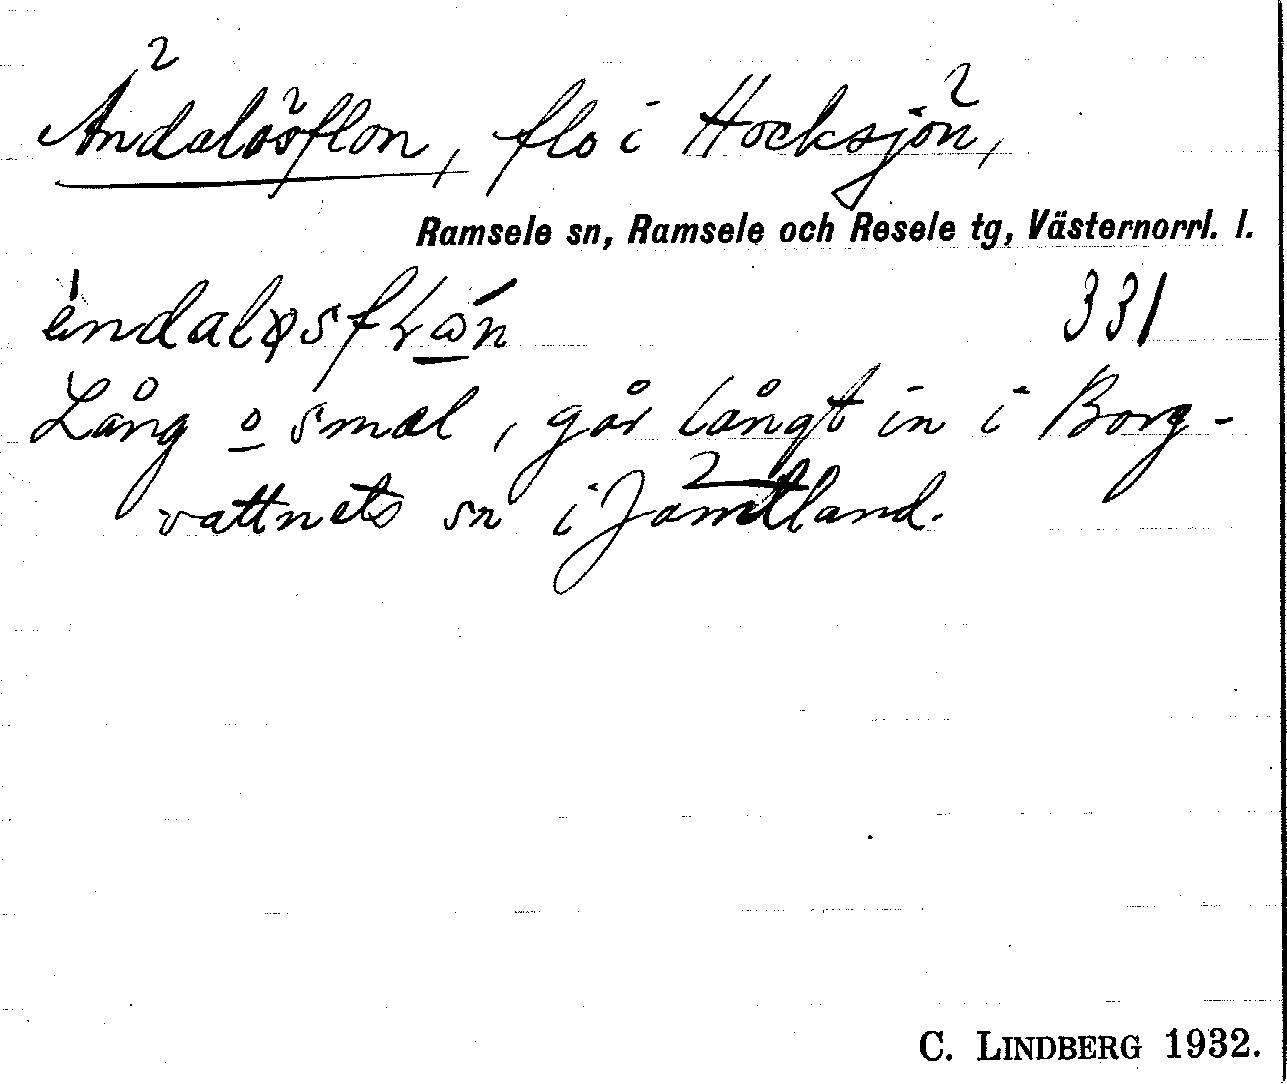 Ändalösflon, flo i Hocksjön,
Ramsele sn, Ramsele och Resele tg, Västernorrl. l.
331
Lång o smal, går långt in i Borg-
vattnets sn i Jämtland.
C. LINDBERG 1932.